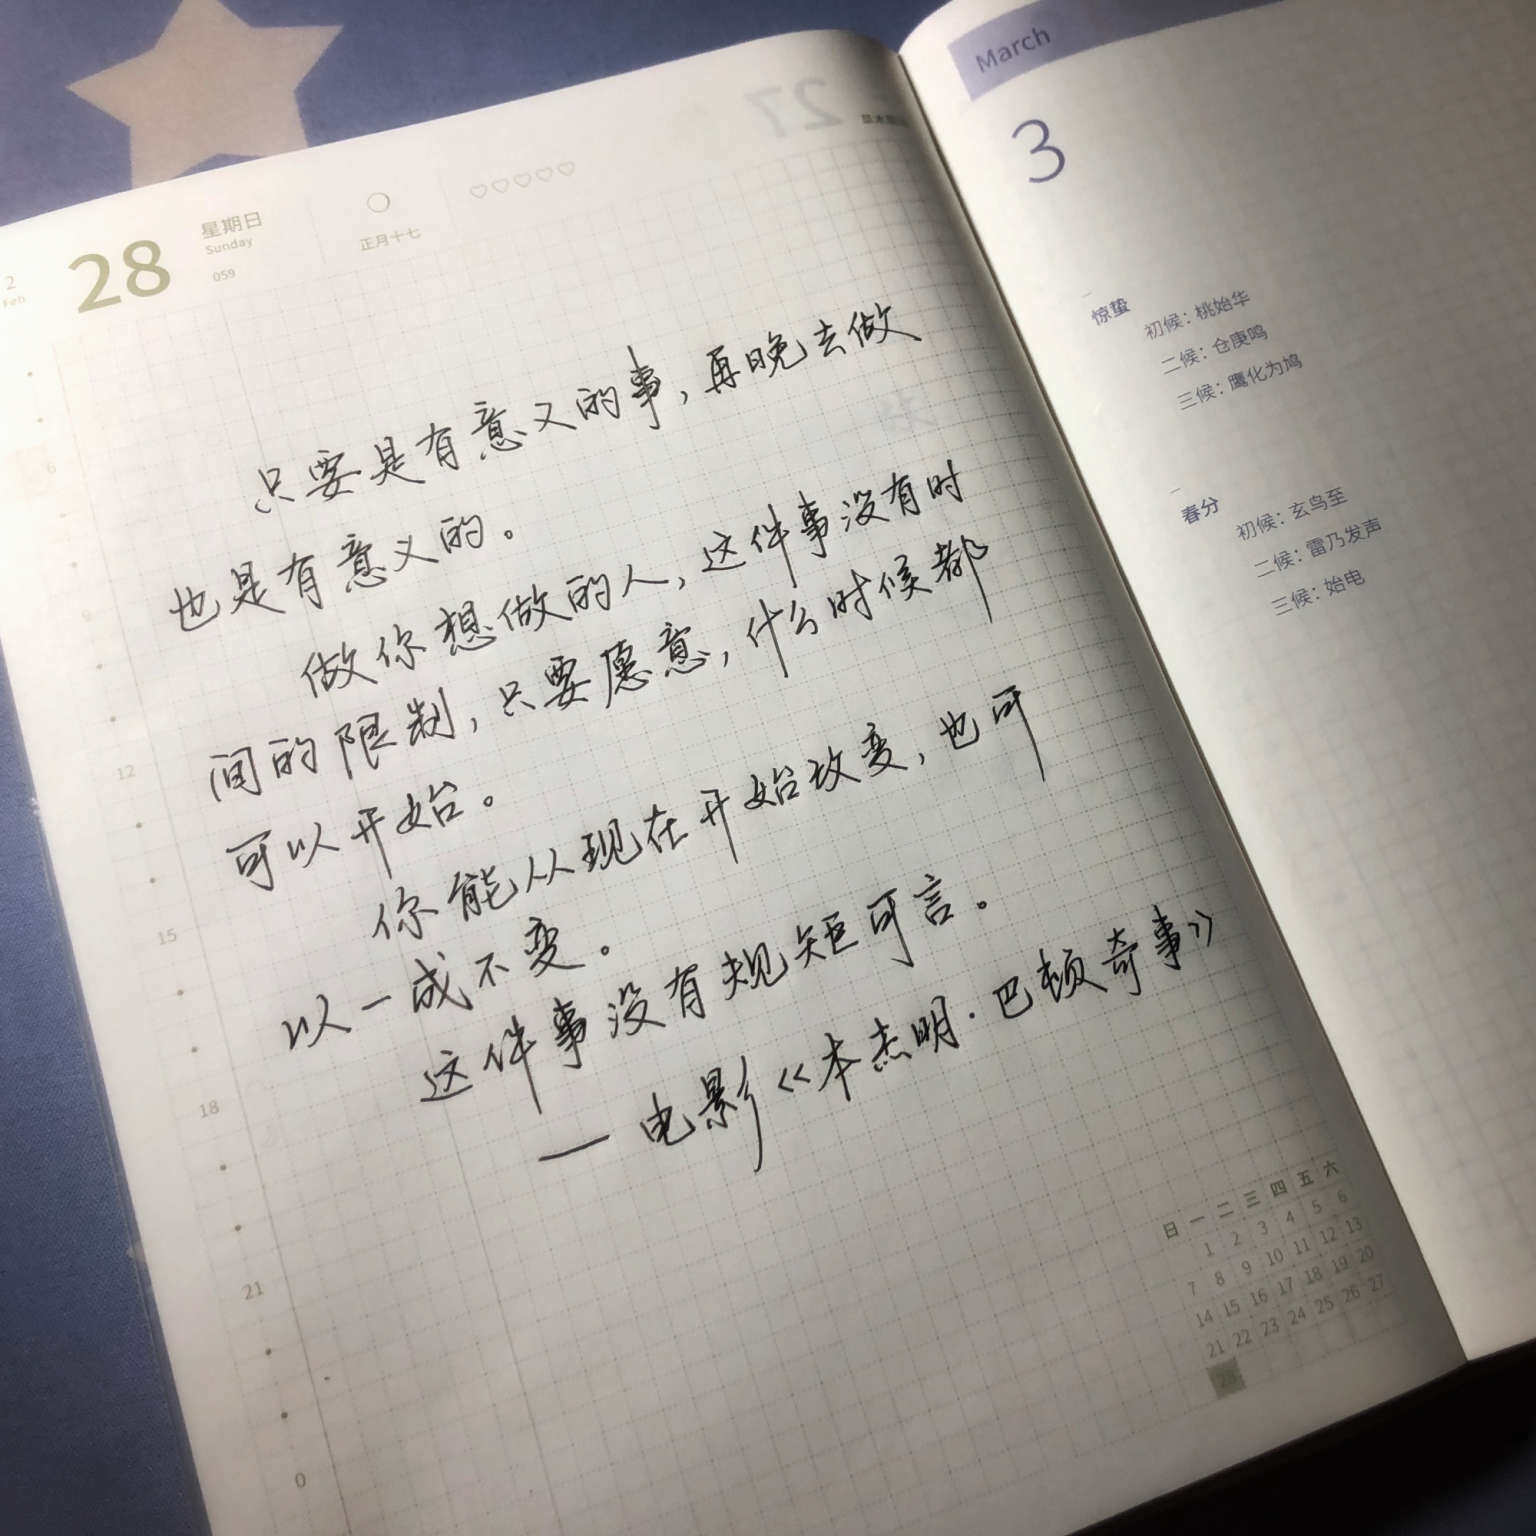 2
Feb
28
星期日
Sunday
059
正月十七
27
只要是有意义的事，再晚去做
也是有意义的。
做你想做的人，这件事没有时
间的限制，只要愿意，什么时候都
可以开始。
你能从现在开始改变，也可
以一成不变。
这件事没有规矩可言。
— 电影《本杰明·巴顿奇事》
6
9
12
15
18
21
0
日 一 二 三 四 五 六
1 2 3 4 5 6
7 8 9 10 11 12 13
14 15 16 17 18 19 20
21 22 23 24 25 26 27
28
March
3
惊蛰
初候：桃始华
二候：仓庚鸣
三候：鹰化为鸠
春分
初候：玄鸟至
二候：雷乃发声
三候：始电